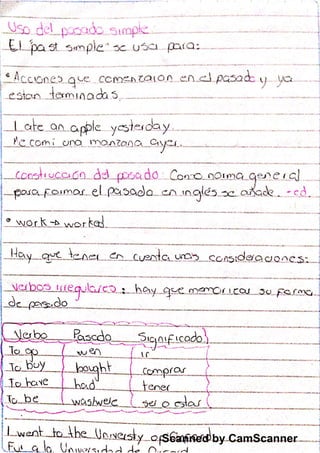 Uso del pasado simple
El "past simple" se usa para:
• Acciones que comenzaron en el pasado y ya
estan terminadas.
I ate an apple yesterday.
Me comi una manzana ayer.
construcción del pasado: Como norma general
para formar el pasado en inglés se añade. -ed.
• work → worked
Hay que tener en cuenta unas consideraciones:
verbos irregulares: hay que memorizar su forma
de pasado
Verbo Pasado Significado
To go wen ir
To buy bought comprar
To have had tener
To be was/were ser o estar
I went to the University of
Scanned by CamScanner
Fui a la Universidad de